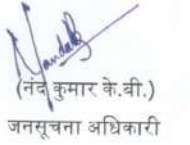 (नंद कुमार के.बी.)
जनसूचना अधिकारी